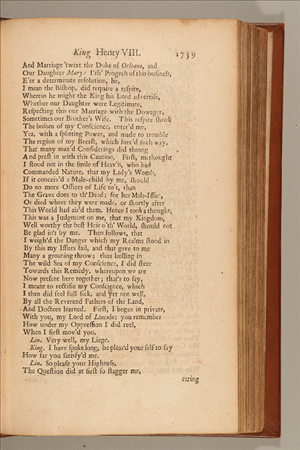 King HENRY VIII. 1739
And Marriage 'twixt the Duke of Orleans, and
Our Daughter Mary: I'th' Progress of this business,
E'er a determinate resolution, he,
I mean the Bishop, did require a respite,
Wherein he might the King his Lord advertise,
Whether our Daughter were Legitimate,
Respecting this our Marriage with the Dowager,
Sometimes our Brother's Wife. This respite shook
The bosom of my Conscience, enter'd me,
Yea, with a splitting Power, and made to tremble
The region of my Breast, which forc'd such way,
That many maz'd Considerings did throng
And prest in with this Caution. First, methought
I stood not in the smile of Heav'n, who had
Commanded Nature, that my Lady's Womb,
If it conceiv'd a Male-child by me, should
Do no more Offices of Life to't, than
The Grave does to th'Dead; for her Male-Issue,
Or died where they were made, or shortly after
This World had air'd them. Hence I took a thought,
This was a Judgment on me, that my Kingdom,
Well worthy the best Heir o'th' World, should not
Be glad in't by me. Then follows, that
I weigh'd the Danger which my Realms stood in
By this my Issues fail, and that gave to me
Many a groaning throw; thus hulling in
The wild Sea of my Conscience, I did steer
Towards this Remedy, whereupon we are
Now present here together; that's to say,
I meant to rectifie my Conscience, which
I then did feel full sick, and yet not well,
By all the Reverend Fathers of the Land,
And Doctors learned. First, I began in private,
With you, my Lord of Lincoln; you remember
How under my Oppression I did reel,
When I first mov'd you.
Lin. Very well, my Liege.
King. I have spoke long, be pleas'd your self to say
How far you satisfy'd me.
Lin. So please your Highness,
The Question did at first so stagger me,
earing